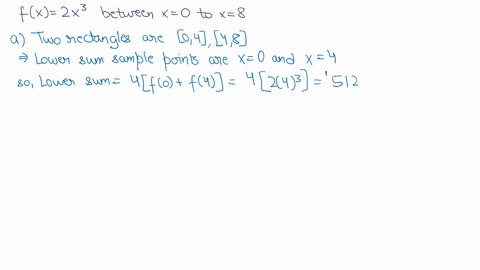 f(x)= 2x³ between x=0 to x=8
a) Two rectangles are [0,4],[4,8]
⇒ Lower sum sample points are x=0 and x=4
so, Lower sum= 4[f(0)+ f(4)] = 4[2(4)³] = 512